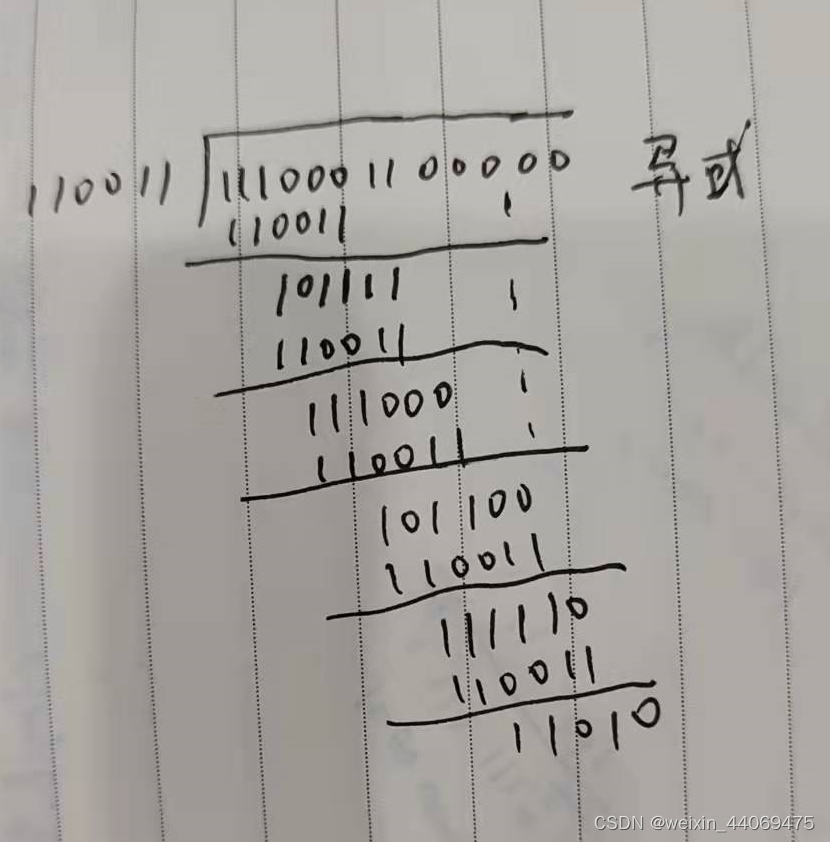 110011 1110001100000 异或
110011
101111
110011
111000
110011
101100
110011
111110
110011
11010
CSDN @weixin_44069475